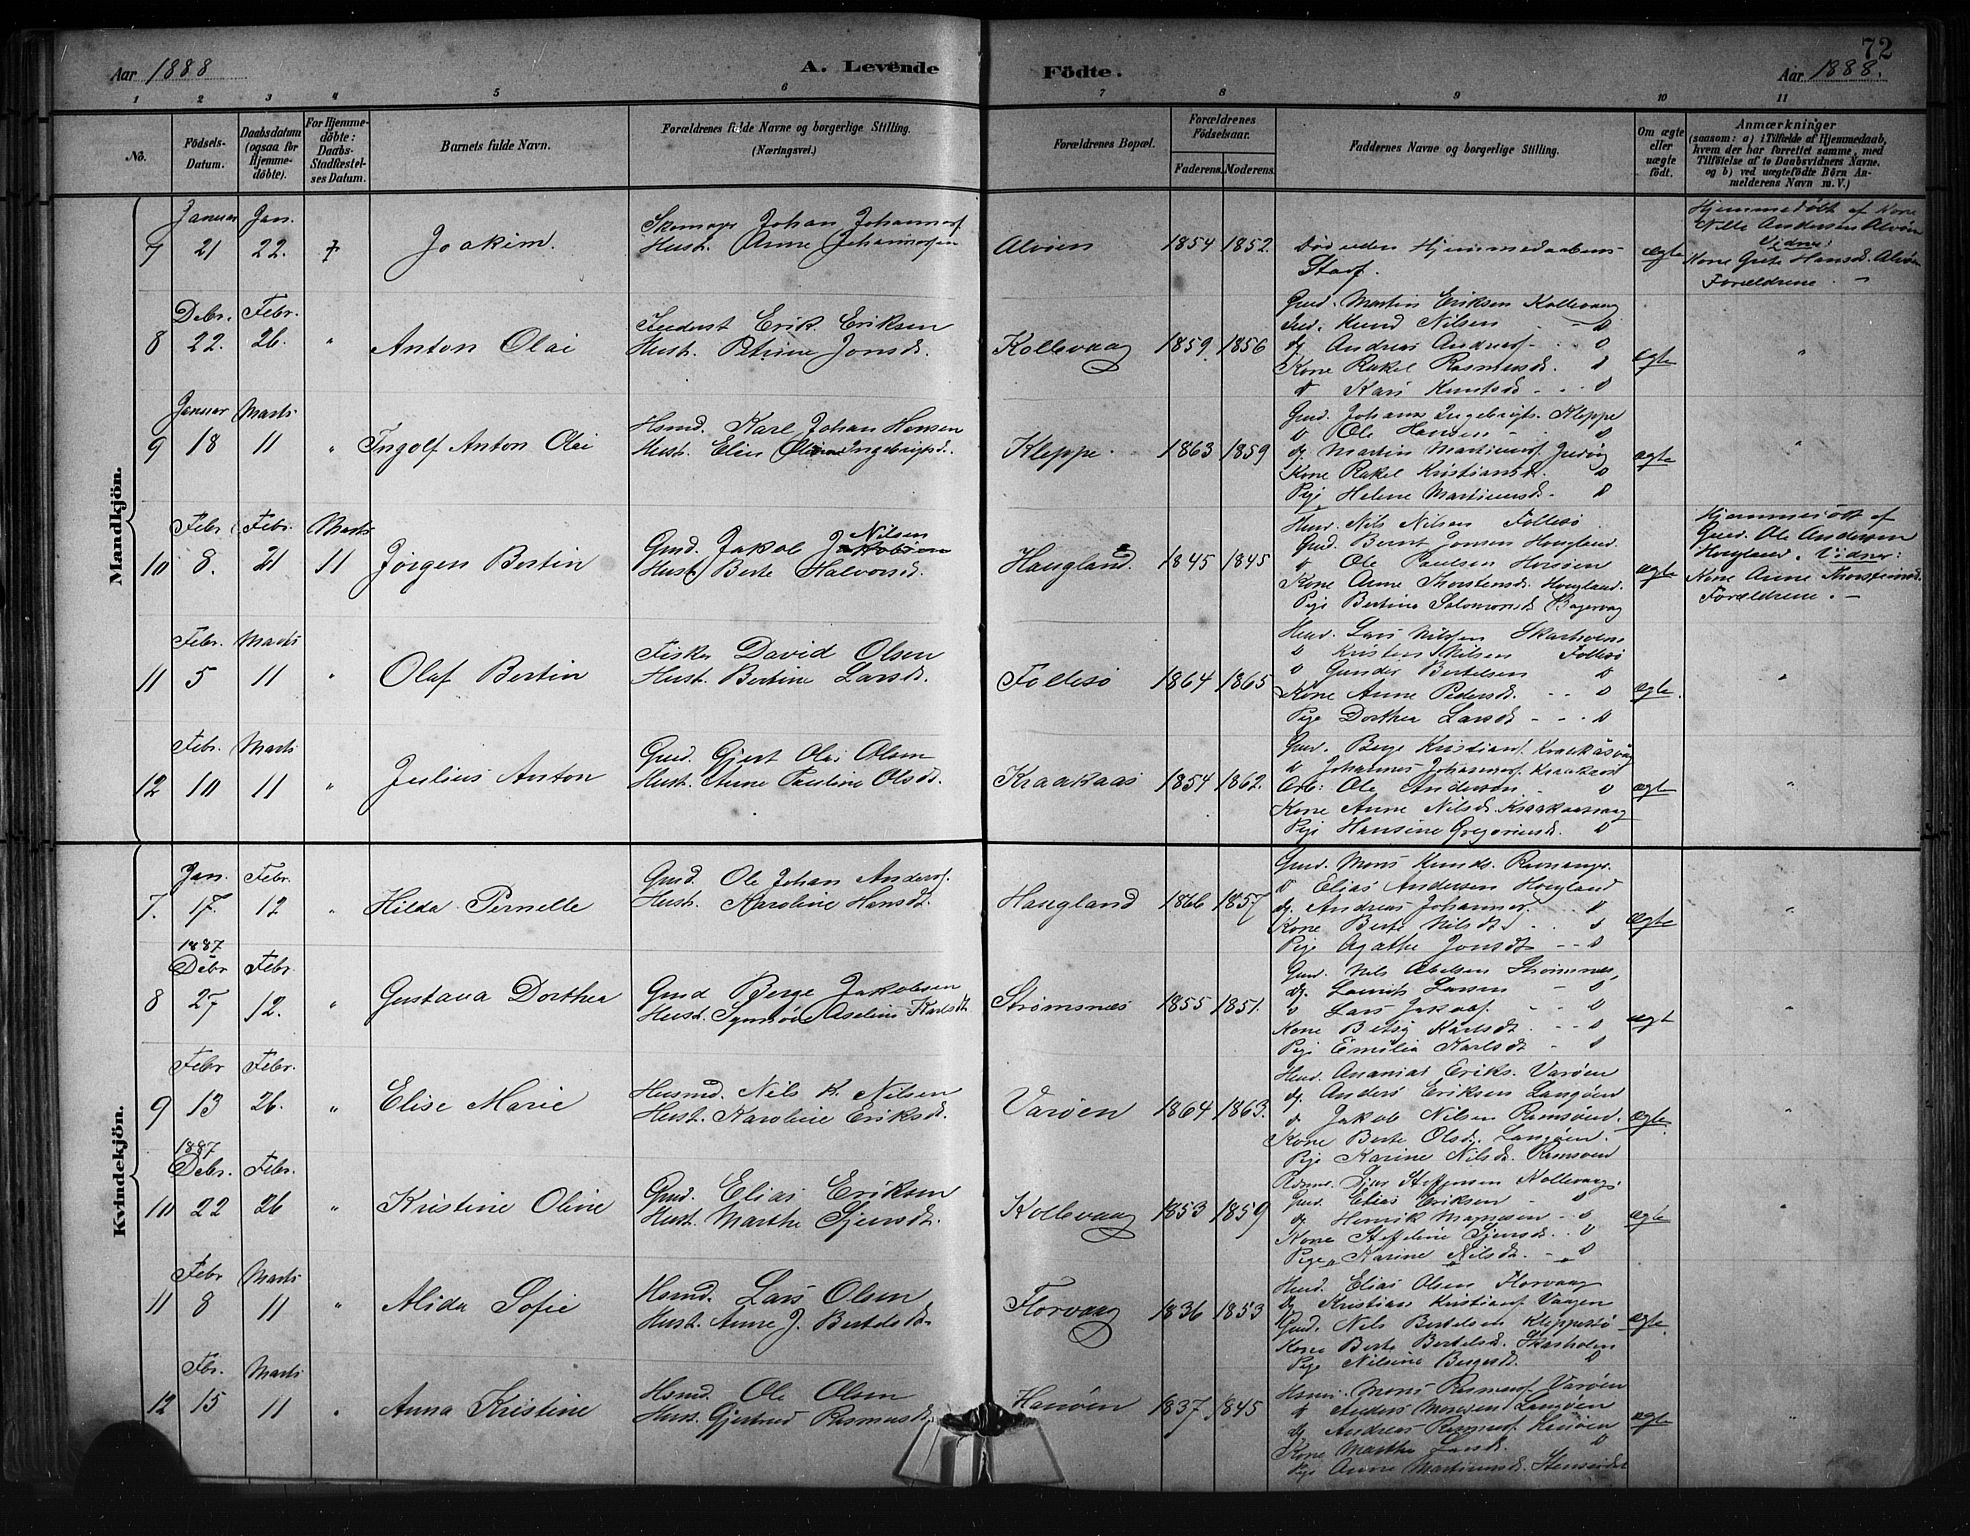 72
Aar 1888
A. Levende
Födte.
Aar 1888.
1 2 3 4 5 6 7 8 9 10 11
No.
Födsels-
Datum.
Daabsdatum
(ogsaa for
Hjemme-
döbte).
For Hjemme-
döbte:
Daabs-
Stadfæstel-
ses Datum.
Barnets fulde Navn.
Forældrenes fulde Navne og borgerlige Stilling.
(Næringsvei.)
Forældrenes Bopæl.
Forældrenes
Födselsaar.
Faderens. Moderens.
Faddernes Navne og borgerlige Stilling.
Om ægte
eller
uægte
födt.
Anmærkninger
(saasom: a) i Tilfælde af Hjemmedaab,
hvem der har forrettet samme, med
Tilföielse af to Daabsvidners Navne,
og b) ved uægtefödte Börn An-
melderens Navn m. V.)
Mandkjön.
Januar Jan.
7 21 22.
Joakim.
Skomager Johan Johannesf
Hust. Anne Johannesen
Alvøen 1854 1852.
Død uden Hjemmedaabens
Stadf.
ægte
Hjemmedøbt af Kone
Nille Andersen Alvøen
Vidner:
Kone Grete Hansd. Alvøen
Forældrene. "
Debr. Febr.
8 22. 26. " Anton Olai
Inderst Erik Eriksen
Hust. Petrine Jonsd.
Kollevaag 1859. 1856
Gmd. Martin Eriksen Kollevaag
Ind. Knud Nilsen
dg. Andreas Andersf.
Kone Rakel Rasmusd.
Kari Knutsd
ægte "
Januar Marts
9 18 11 " Ingolf Anton Olai
Hsmd. Karl Johan Hansen
Hust. Elen Oline Ingebrigtsd.
Kleppe. 1863 1859
Gmd. Johans Ingebrigts. Kleppe
Ole Hansen
dg. Martin Martinusf
Kone Rakel Kristiansd.
Pige Helene Martinusd.
ægte "
Febr. Febr. Marts
10 8. 21 11 Jørgen Bertin
Nilsen
Gmd. Jakob Jakobsen
Hust. Berte Halvorsd.
Haugland. 1845 1845
Nils Nilsen Follesø.
Gmd. Bernt Jonsen Haugland.
Ole Paulsen
Kone Anne Thorstensd. Haugland.
Pige Bertine Salomonsd.
ægte
Hjemmedøbt af
Gmd. Ole Andersen
Haugland. Vidner:
Kone Anne Thorsteinsd.
Forældrene. "
Febr. Marts
11 5 11 " Olaf Bertin
Fisker David Olsen
Hust. Bertine Larsd.
Follesø 1864 1865
Lars Nilsen Skarholmen
Kristen Nilsen Follesø
Gunder Bertelsen
Kone Anne Pedersd.
Pige Dorthea Larsd
ægte. "
Febr. Marts
12 10 11 " Julius Anton
Gmd. Gjert Olai Olsen
Hust. Anne Pauline Olsdt.
Kraakaas 1854 1862.
Gmd. Berge Kristiansf. Kraakaasvaag
Johannes Johannesf. Kraakaas
Arb: Ole Anderson
Kone Anne Nilsd. Kraakaasvaag
Pige Hansine Gregoriusd.
ægte "
Kvindekjön.
Jan. Febr.
7. 17. 12 " Hilda Pernelle
Gmd. Ole Johan Andersf.
Hust. Karoline Hansdt.
Haugland 1866 1857
Gmd. Mons Knuds. Ramanger
Elias Andersen Haugland
dg. Andreas Johannesf.
Kone Berte Nilsdt.
Pige Agathe Jonsdt
ægte "
1887
Debr Febr.
8 27 12. " Gustava Dorthea
Gmd Berge Jakobsen
Hust. Synnøve Aseline Karlsdt
Strømsnæs 1855 1851.
Gmd. Nils Abelsen Strømsnæs
dg. Laurits Larsen
Lars Jakobf.
Kone Betsy Karlsdt.
Pige Emilia Karlsdt
ægt "
Febr Febr.
9 13 26. " Elise Marie
Husmd. Nils K. Nilsen
Hust. Karoline Eriksd.
Varøen 1864 1863.
Ananias Eriks. Varøen
dg. Anders Eriksen Langøen
Jakob Nilsen Ramsøen.
Kone Berte Olsd. Langøen.
Pige Karine Nilsd. Ramsøen
ægte. "
1887
Debr. Febr.
10 22 26 " Kristine Olive
Gmd. Elias Eriksen
Hust. Marthe Sjursdt.
Kollevaag 1853 1859
Sjur Steffensen Kollevaag.
Gmd. Elias Eriksen
dg. Henrik Magnesen
Kone Steffeline Sjursd.
Pige Karine Nilsdt.
ægte "
Febr Marts
11 8 11 " Alida Sofie
Hsmd. Lars Olsen
Hust. Anne J. Bertelsdt.
Florvaag 1836 1853
Elias Olsen Florvaag
dg Kristian Kristiansf. Vaagen
Gmd. Nils Bertelsen Kleppesø
Kone Berte Bertelsd. Skarholm
Pige Nilsine Bergesd.
ægte.
Fbr. Marts
12 15 11 " Anna Kristine
Hsmd. Ole Olsen
Hust. Gjertrud Rasmusd.
Hanøen 1837 1845
Hsmd. Mons Rasmusf. Varøen
Anders Monsen Langøen
dg. Andreas Rasmusf. Hanøen
Kone Marthe Larsd.
Pige Anne Martinusd.
ægte